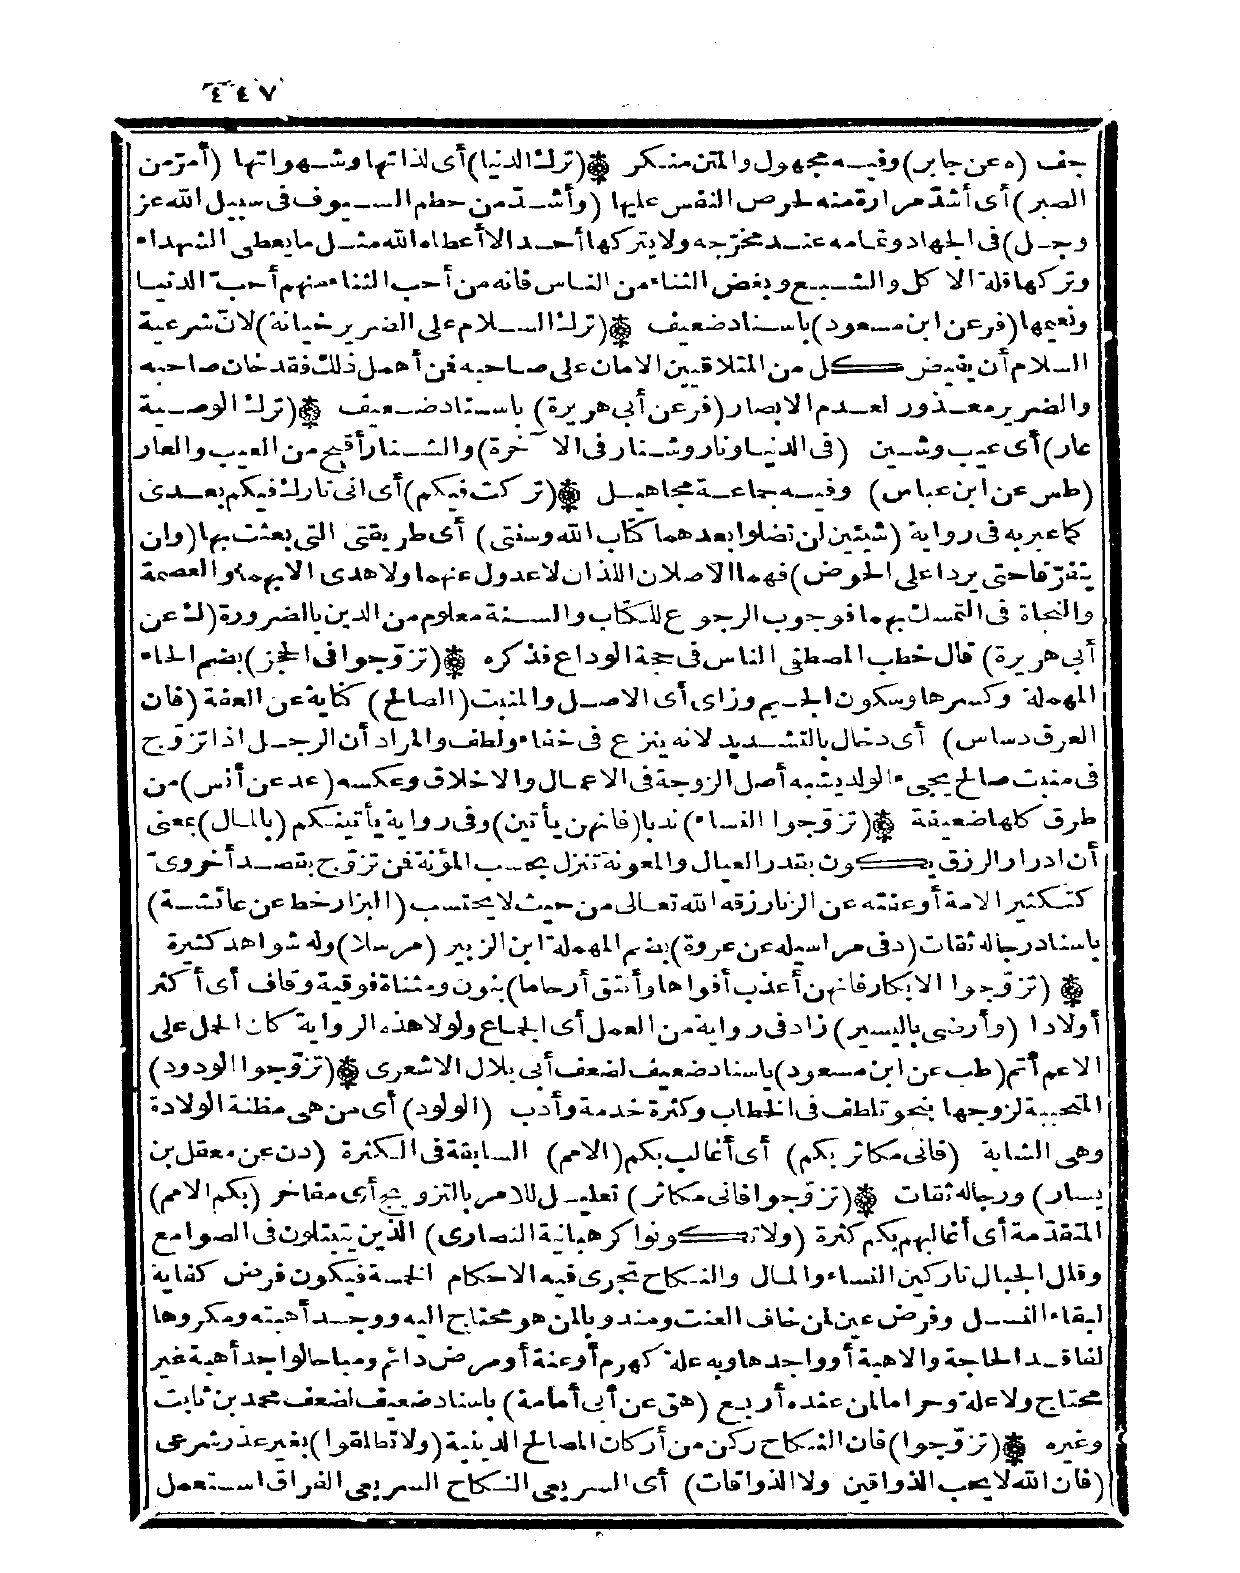 ٤٤٧
جف (ه عن جابر) وفيه مجهول والمتن منكر ۞ (ترك الدنيا) أى لذاتها وشهواتها (أمرّ من
الصبر) أى أشدّ مرارة منه لحرص النفس عليها (وأشدّ من حطم السيوف فى سبيل الله عز
وجل) فى الجهاد وتمامه عند مخرّجه ولا يتركها أحد الا أعطاه الله مثل ما يعطى الشهداء
وتركها قلة الاكل والشبع وبغض الثناء من الناس فانه من أحب الثناء منهم أحبّ الدنيا
ونعيمها (فر عن ابن مسعود) باسناد ضعيف ۞ (ترك السلام على الضرير خيانة) لانّ شرعية
السلام أن يفيض كل من المتلاقيين الامان على صاحبه فمن أهمل ذلك فقد خان صاحبه
والضرير معذور لعدم الابصار (فر عن أبى هريرة) باسناد ضعيف ۞ (ترك الوصية
عار) أى عيب وشين (فى الدنيا ونار وشنار فى الآخرة) والشنار أقبح من العيب والعار
(طس عن ابن عباس) وفيه جماعة مجاهيل ۞ (تركت فيكم) أى انى تارك فيكم بعدى
كما عبر به فى رواية (شيئين لن تضلوا بعدهما كتاب الله وسنتى) أى طريقتى التى بعثت بها (ولن
يتفرّقا حتى يردا على الحوض) فهما الاصلان اللذان لا عدول عنهما ولا هدى الا بهما والعصمة
والنجاة فى التمسك بهما فوجوب الرجوع للكتاب والسنة معلوم من الدين بالضرورة (ك عن
أبى هريرة) قال خطب المصطفى الناس فى حجة الوداع فذكره ۞ (تزوّجوا فى الحجز) بضم الحاء
المهملة وكسرها وسكون الجيم وزاى أى الاصل والمنبت (الصالح) كناية عن العفة (فان
العرق دساس) أى دخال بالتشديد لانه ينزع فى خفاء ولطف والمراد أن الرجل اذا تزوّج
فى منبت صالح يجىء الولد يشبه أصل الزوجة فى الاعمال والاخلاق وعكسه (عد عن أنس) من
طرق كلها ضعيفة ۞ (تزوّجوا النساء) ندبا (فانهن يأتين) وفى رواية يأتينكم (بالمال) بمعنى
أن ادرار الرزق يكون بقدر العيال والمعونة تنزل بحسب المؤنة فمن تزوّج بقصد أخروىّ
كتكثير الامة أو عفته عن الزنا رزقه الله تعالى من حيث لا يحتسب (البزار خط عن عائشة)
باسناد رجاله ثقات (د فى مراسيله عن عروة) بضم المهملة ابن الزبير (مرسلا) وله شواهد كثيرة
۞ (تزوّجوا الابكار فانهن أعذب أفواها وأنتق أرحاما) بنون ومثناة فوقية وقاف أى أكثر
أولادا (وأرضى باليسير) زاد فى رواية من العمل أى الجماع ولولا هذه الرواية كان الحمل على
الاعم أتم (طب عن ابن مسعود) باسناد ضعيف لضعف أبى بلال الاشعرى ۞ (تزوّجوا الودود)
المتحببة لزوجها بنحو تلطف فى الخطاب وكثرة خدمة وأدب (الولود) أى من هى مظنة الولادة
وهى الشابة (فانى مكاثر بكم) أى أغالب بكم (الامم) السابقة فى الكثرة (د ن عن معقل بن
يسار) ورجاله ثقات ۞ (تزوّجوا فانى مكاثر) تعليل للامر بالتزويج أى مفاخر (بكم الامم)
المتقدّمة أى أغالبهم بكم كثرة (ولا تكونوا كرهبانية النصارى) الذين يتبتلون فى الصوامع
وقلل الجبال تاركين النساء والمال والنكاح تجرى فيه الاحكام الخمسة فيكون فرض كفاية
لبقاء النسل وفرض عين لمن خاف العنت ومندوبا لمن هو محتاج اليه ووجد أهبته ومكروها
لفاقد الحاجة والاهبة أو واجدها وبه علة كهرم أو عنة أو مرض دائم ومباحا لواجد أهبة غير
محتاج ولا علة وحراما لمن عنده أربع (هق عن أبى أمامة) باسناد ضعيف لضعف محمد بن ثابت
وغيره ۞ (تزوّجوا) فان النكاح ركن من أركان المصالح الدينية (ولا تطلقوا) بغير عذر شرعى
(فان الله لا يحب الذواقين ولا الذواقات) أى السريعى النكاح السريعى الفراق استعمل